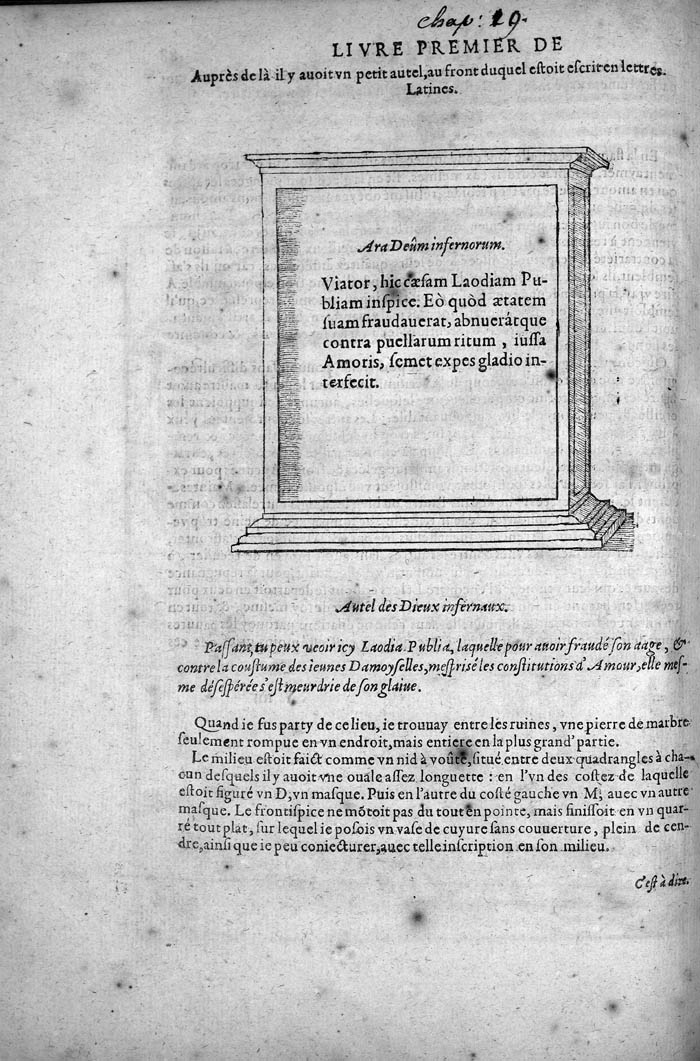 chap: 19.
LIVRE PREMIER DE
Auprès de là il y auoit vn petit autel, au front duquel estoit escrit en lettres
Latines.
Ara Deûm infernorum.
Viator, hic cæsam Laodiam Pu-
bliam inspice. Eò quòd ætatem
suam fraudauerat, abnuerátque
contra puellarum ritum, iussa
Amoris, semet expes gladio in-
terfecit.
Autel des Dieux infernaux.
Passant, tu peux veoir icy Laodia Publia, laquelle pour auoir fraudé son aage, &
contre la coustume des ieunes Damoyselles, mesprisé les constitutions d'Amour, elle mes-
me désespérée s'est meurdrie de son glaiue.
Quand ie fus party de ce lieu, ie trouuay entre les ruines, vne pierre de marbre
seulement rompue en vn endroit, mais entiere en la plus grand' partie.
Le milieu estoit faict comme vn nid à voûte, situé entre deux quadrangles à cha-
cun desquels il y auoit vne ouale assez longuette : en l'vn des costez de laquelle
estoit figuré vn D, vn masque. Puis en l'autre du costé gauche vn M, auec vn autre
masque. Le frontispice ne mõtoit pas du tout en pointe, mais finissoit en vn quar-
ré tout plat, sur lequel ie posois vn vase de cuyure sans couuerture, plein de cen-
dre, ainsi que ie peu coniecturer, auec telle inscription en son milieu.
C'est à dire.